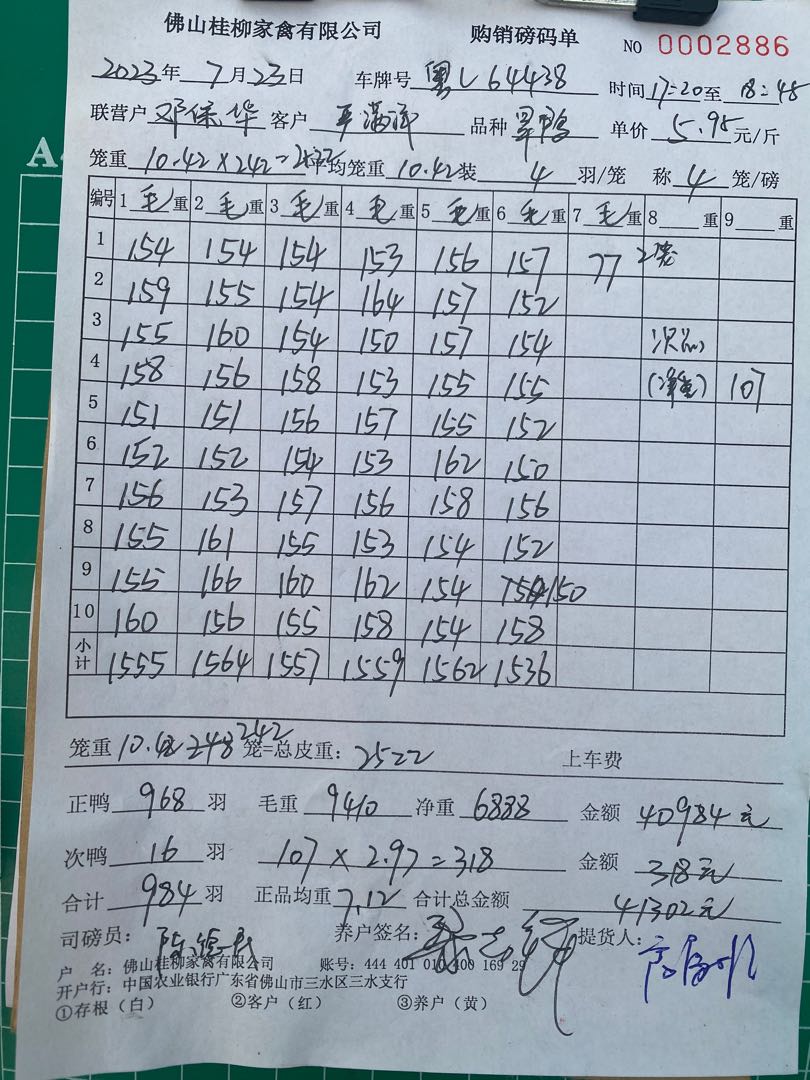 佛山桂柳家禽有限公司 购销磅码单 NO 0002886
2023年 7月23日 车牌号 粤L64438 时间17:20至 18:45
联营户 邓保华 客户 品种 单价 5.95元/斤
笼重 10.42×242=2522 平均笼重10.42装 4 羽/笼 称 4 笼/磅
编号 1 毛 重 2 毛 重 3 毛 重 4 毛 重 5 毛 重 6 毛 重 7 毛 重 8 重 9 重
1 154 154 154 153 156 157 77 2笼
2 159 155 154 164 157 152
3 155 160 154 150 157 154 次品
4 158 156 158 153 155 155 (净重) 107
5 151 151 156 157 155 152
6 152 152 154 153 162 150
7 156 153 157 156 158 156
8 155 161 155 153 154 152
9 155 166 160 162 154 150
10 160 156 155 158 154 158
小计 1555 1564 1557 1559 1562 1536
笼重 10.42 248 242 笼=总皮重: 2522 上车费
正鸭 968 羽 毛重 9410 净重 6888 金额 40984元
次鸭 16 羽 107×2.97=318 金额 318元
合计 984 羽 正品均重 7.12 合计总金额 41302元
司磅员: 养户签名: 提货人:
户 名: 佛山桂柳家禽有限公司 账号: 444 401 010 400 169 29
开户行: 中国农业银行广东省佛山市三水区三水支行
①存根(白) ②客户(红) ③养户(黄)